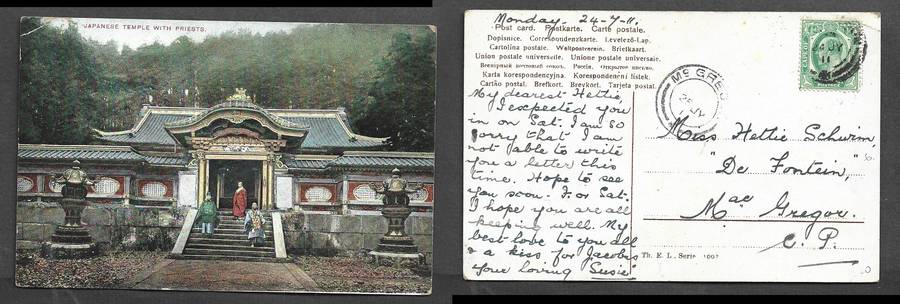 JAPANESE TEMPLE WITH PRIESTS.
Monday. 24-7-11.
Post card. Postkarte. Carte postale.
Dopisnice. Correspondenzkarte. Levelező-Lap.
Cartolina postale. Weltpostverein. Briefkaart.
Union postale universelle. Unione postale universale.
Всемірный почтовый союзъ. Россія. Открытое письмо.
Karta korespondencyjna. Korespondenční lístek.
Cartão postal. Brefkort. Brevkort. Tarjeta postal.
My dearest Hettie,
I expected you
in on Sat. I am so
sorry that I am
not able to write
you a letter this
time. Hope to see
you soon. For Sat.
I hope you are all
keeping well. My
best love to you all
& a kiss for Jacobus
Your loving Susie
Mc GREG
24 JY
11
Miss Hettie Schwim,
"De Fontein,"
Mac Gregor.
C. P.
Th. E. L., Serie 1002